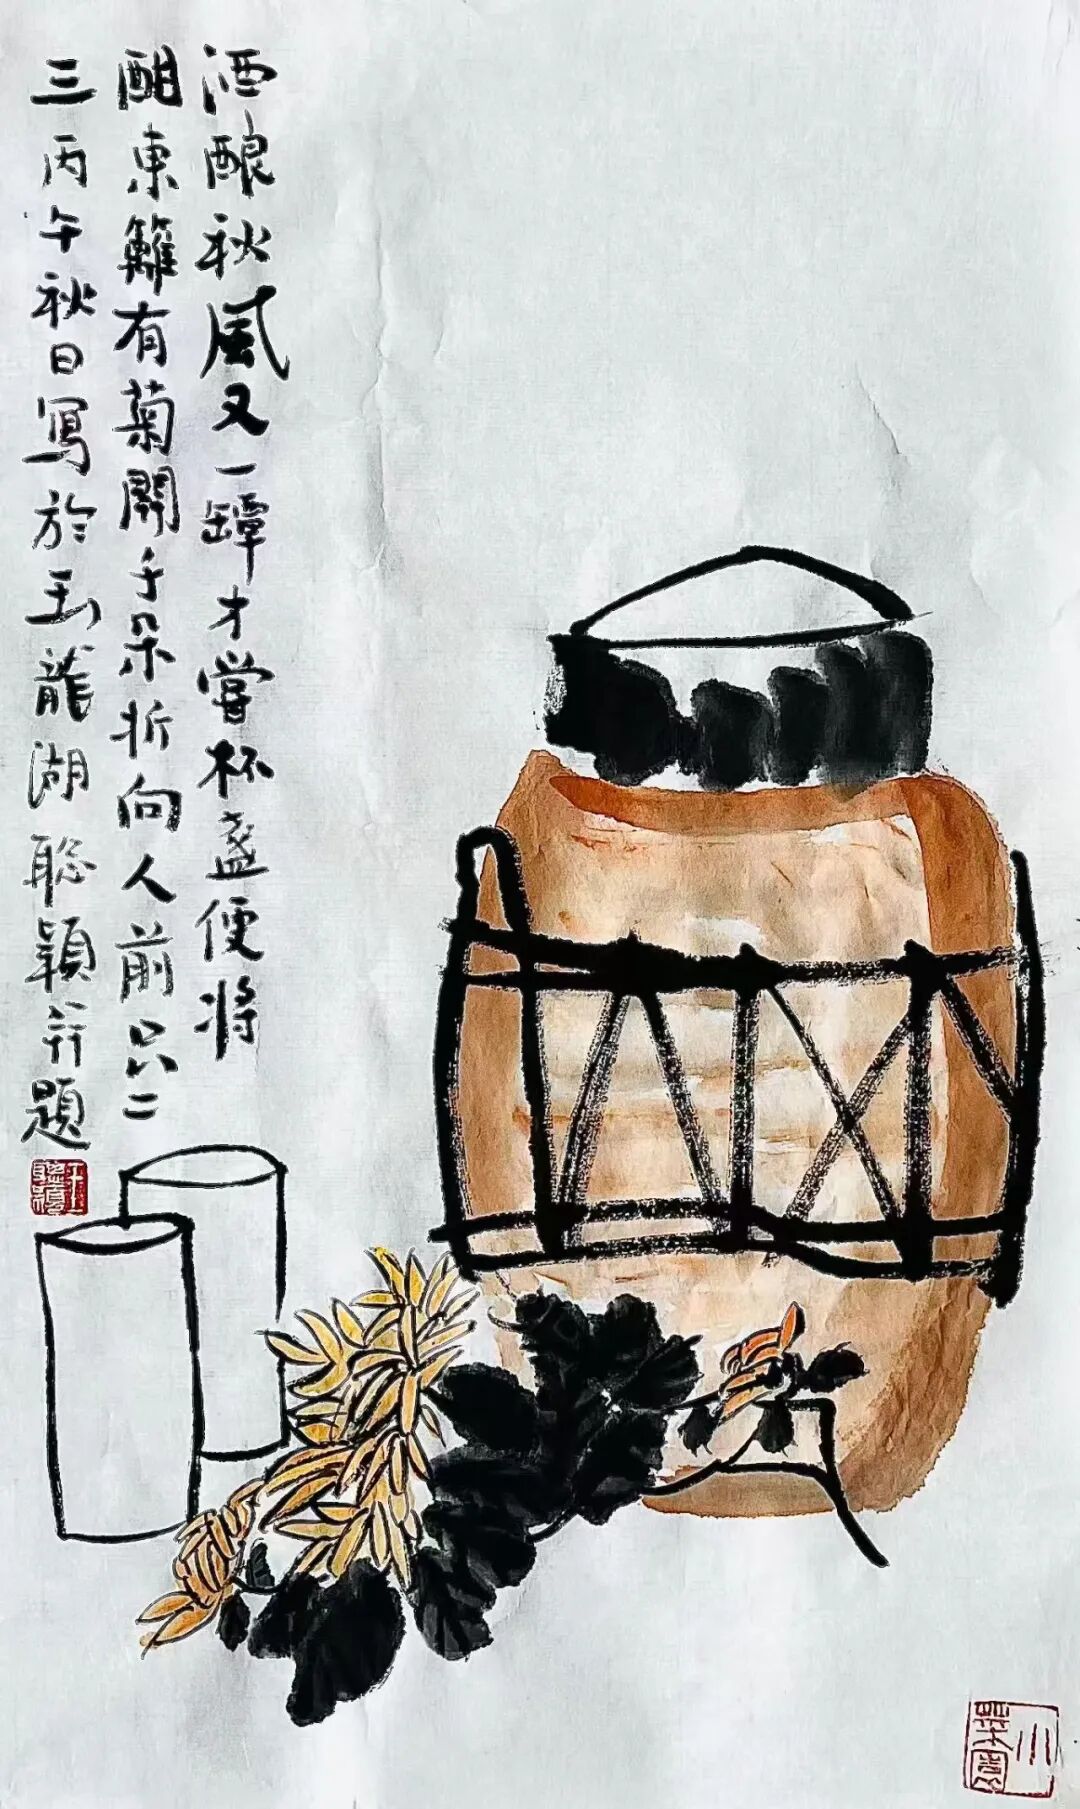 酒酿秋風又一罈才嘗杯盏便将
酣東籬有菊開千朵折向人前只二
三丙午秋日寫於玉龍湖聪穎并題